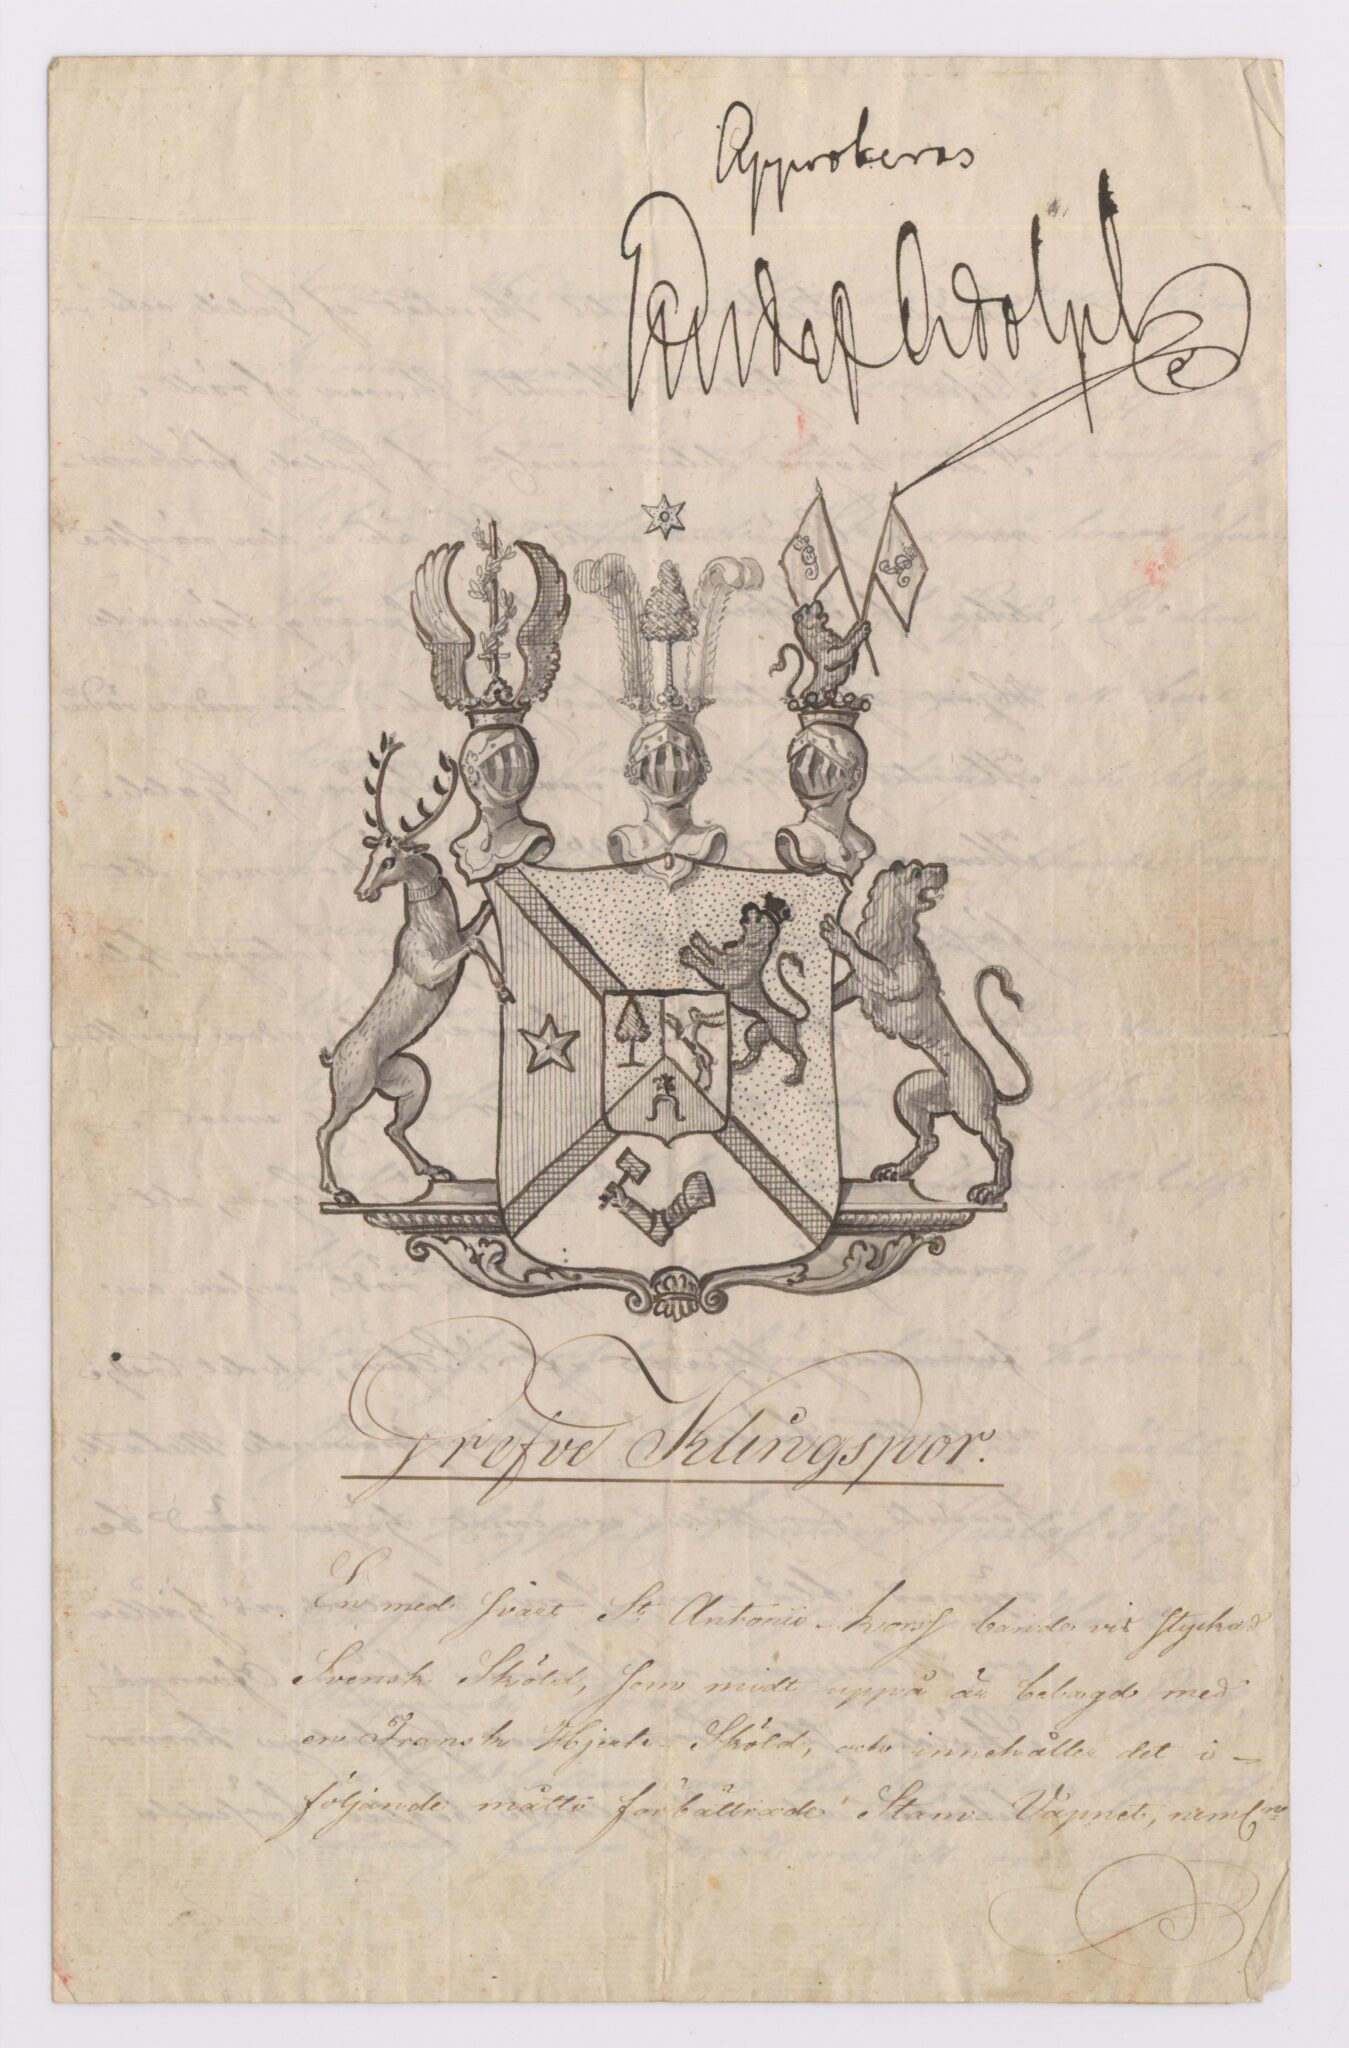 Approberas
Gustaf Adolph
Grefve Klingspor.
En med svart St Antonii-korss bandevis styckad
Svensk Sköld, som midt uppå är belagd med
en Fransk Hjerte-Sköld, och innehåller det i-
följande måtto förbättrade Stam-Vapnet, nemln